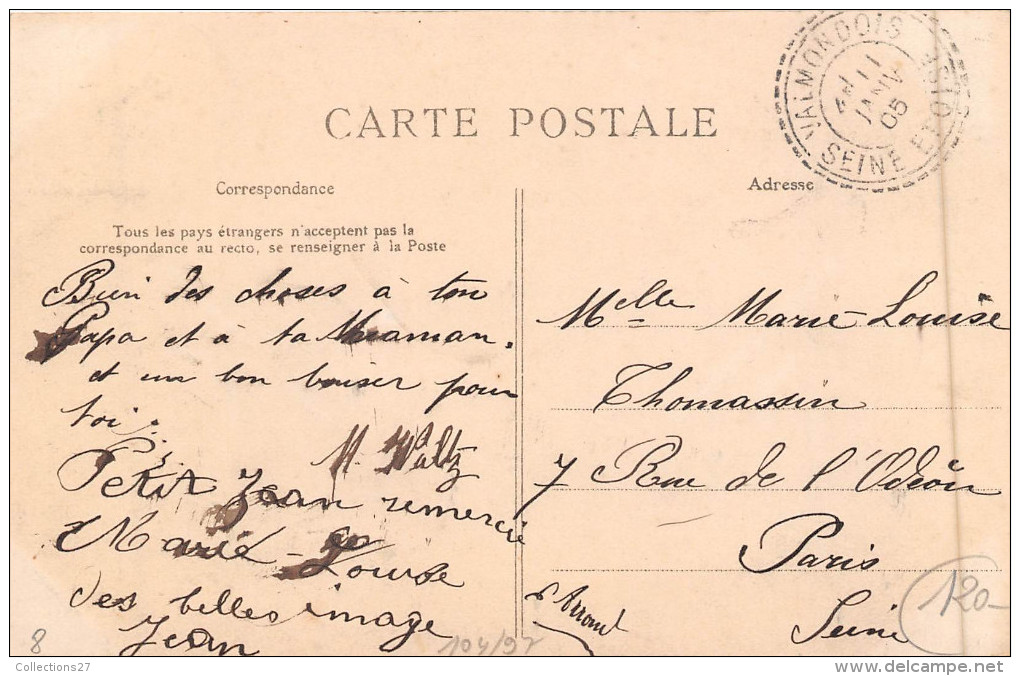 CARTE POSTALE
VALMONDOIS
11
JANV
05
SEINE ET OISE
Correspondance
Adresse
Tous les pays étrangers n'acceptent pas la
correspondance au recto, se renseigner à la Poste
Bien des choses à ton
Papa et à ta Maman.
et un bon baiser pour
toi.
M. Waltz
Petit Jean remercie
Marie-Louise
des belles image
Jean
Melle Marie-Louise
Thomassin
7 Rue de l'Odéon
Paris
Seine
120-
8
104/97
Collections27
delcampe.net